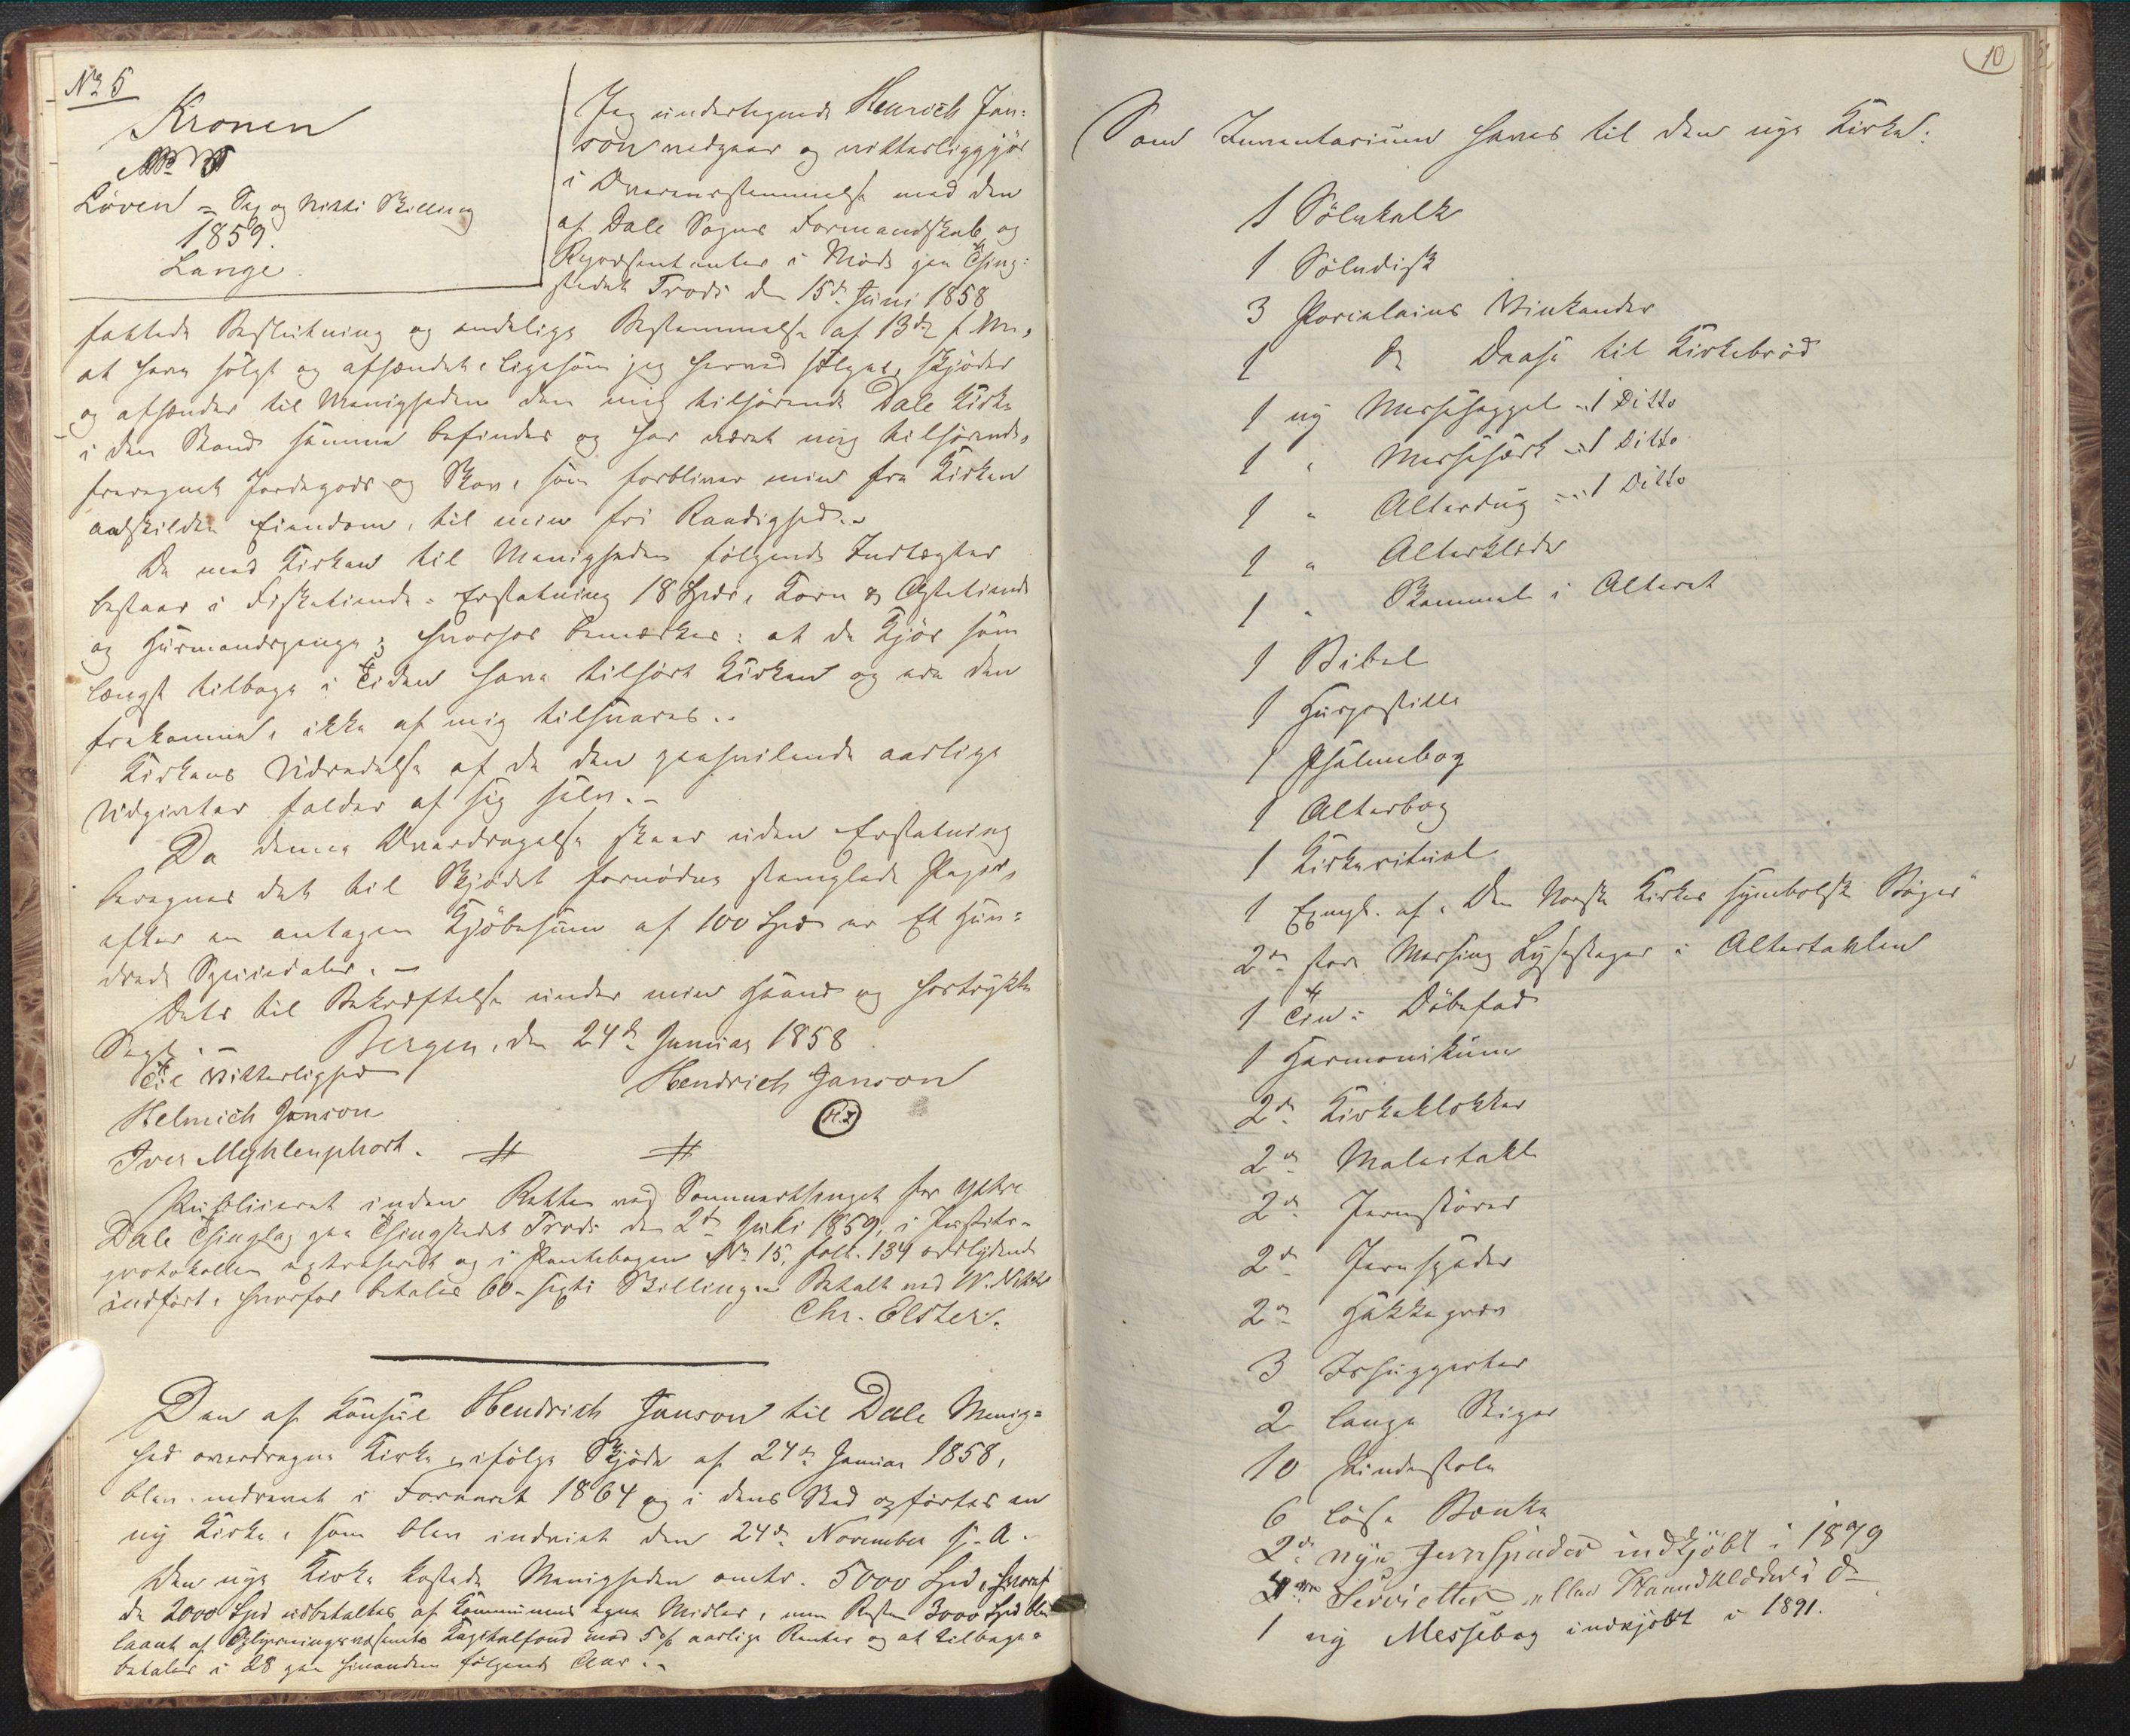 No 5
Kronen
No 5
Løven = Sex og Nitti Skilling
1859.
Lange.
Jeg undertegnede Henrich Jan-
son vedgaaer og vitterliggjør
i Overensstemmelse med den
af Dale Sogns Formandskab og
Repræsentanter i Møde paa Thing-
stedet Trodi den 15de Juni 1858
fattede Beslutning og endelige Bestemmelse af 13de f. M.,
at have solgt og afhændet, ligesom jeg herved sælger, skjøder
og afhænder til Menigheden den mig tilhørende Dale Kirke
i den Stand samme befindes og har været mig tilhørende,
fraregnet Jordegods og Skov, som forbliver min fra Kirken
adskildte Eiendom, til min fri Raadighed.-
De med Kirken til Menigheden følgende Indtægter
bestaar i Fisketiende-Erstatning 18 Spdr, Korn & Ostetiende
og Huusmandspenge; hvorhos bemærkes: at de Kjør som
længst tilbage i Tiden have tilhørt Kirken og ere den
frakomne, ikke af mig tilsvares.-
Kirkens Udredelse af de den paahvilende aarlige
Udgivter falder af sig selv.-
Da denne Overdragelse skeer uden Erstatning
beregnes det til Skjødet fornødne stemplede Papir,
efter en antagen Kjøbesum af 100 Spd er Et Hun-
drede Speciedaler.-
Dets til Bekræftelse under min Haand og hostrykte
Segl.- Bergen, den 24de Januar 1858
Til Vitterlighed
Hendrich Janson
Helmich Janson
(H.J)
Iver Myhlenphort.
Publiceret inden Retten ved Sommerthinget for Yttre
Dale Thinglag paa Thingstedet Trodi den 2de Juli 1859, i Justits-
protokollen extraheret og i Pantebogen No 15, foll. 134 ordlydende
indført, hvorfor betales 60 - sexti Skilling.- Betalt ved W.
Chr. Elster.
Den af Konsul Hendrich Janson til Dale Menig-
hed overdragne Kirke, ifølge Skjøde af 24de Januar 1858,
blev nedrevet i Foraaret 1864 og i dens Sted opførtes en
ny Kirke, som blev indviet den 24de November s. A.
Den nye Kirke kostede Menigheden omtr. 5000 Spd, hvoraf
de 2000 Spd udbetaltes af Kommunens egne Midler, men Resten 3000 Spd blev
laant af Oplysningsvæsenets Kapitalfond mod 5% aarlige Renter og at tilbage-
betales i 28 paa hinanden følgende Aar.-
10
Som Inventarium haves til den nye Kirke:
1 Sölvkalk
1 Sölvdisk
3 Porcelains Vinkander
1 do Daase til Kirkebröd
1 ny Messehagel - 1 Ditto
1 " Messesærk - 1 Ditto
1 " Alterdug - 1 Ditto
1 " Alterklæde
1 " Skammel i Alteret
1 Bibel
1 Huuspostille
1 Psalmebog
1 Alterbog
1 Kirkeritual
1 Expl. af "Den Norske Kirkes symbolske Bøger"
2de store Messing Lysestager i Altertavlen
1 Tin-Döbefad
1 Harmonikum
2de Kirkeklokker
2de Malestokke
2de Jernstörer
2de Jernspader
2de Hakke
3 Ishuggerter
2 lange Stiger
10 Pindestole
6 löse Benke
2de nye Jernspader indkjöbt i 1879
Servietter eller Haandklæder i do
1 ny Messebog indkjöbt i 1891.